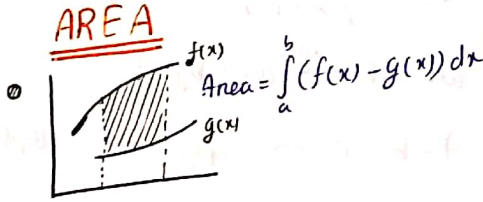 AREA
f(x)
Area = ∫_a^b (f(x) - g(x)) dx
g(x)